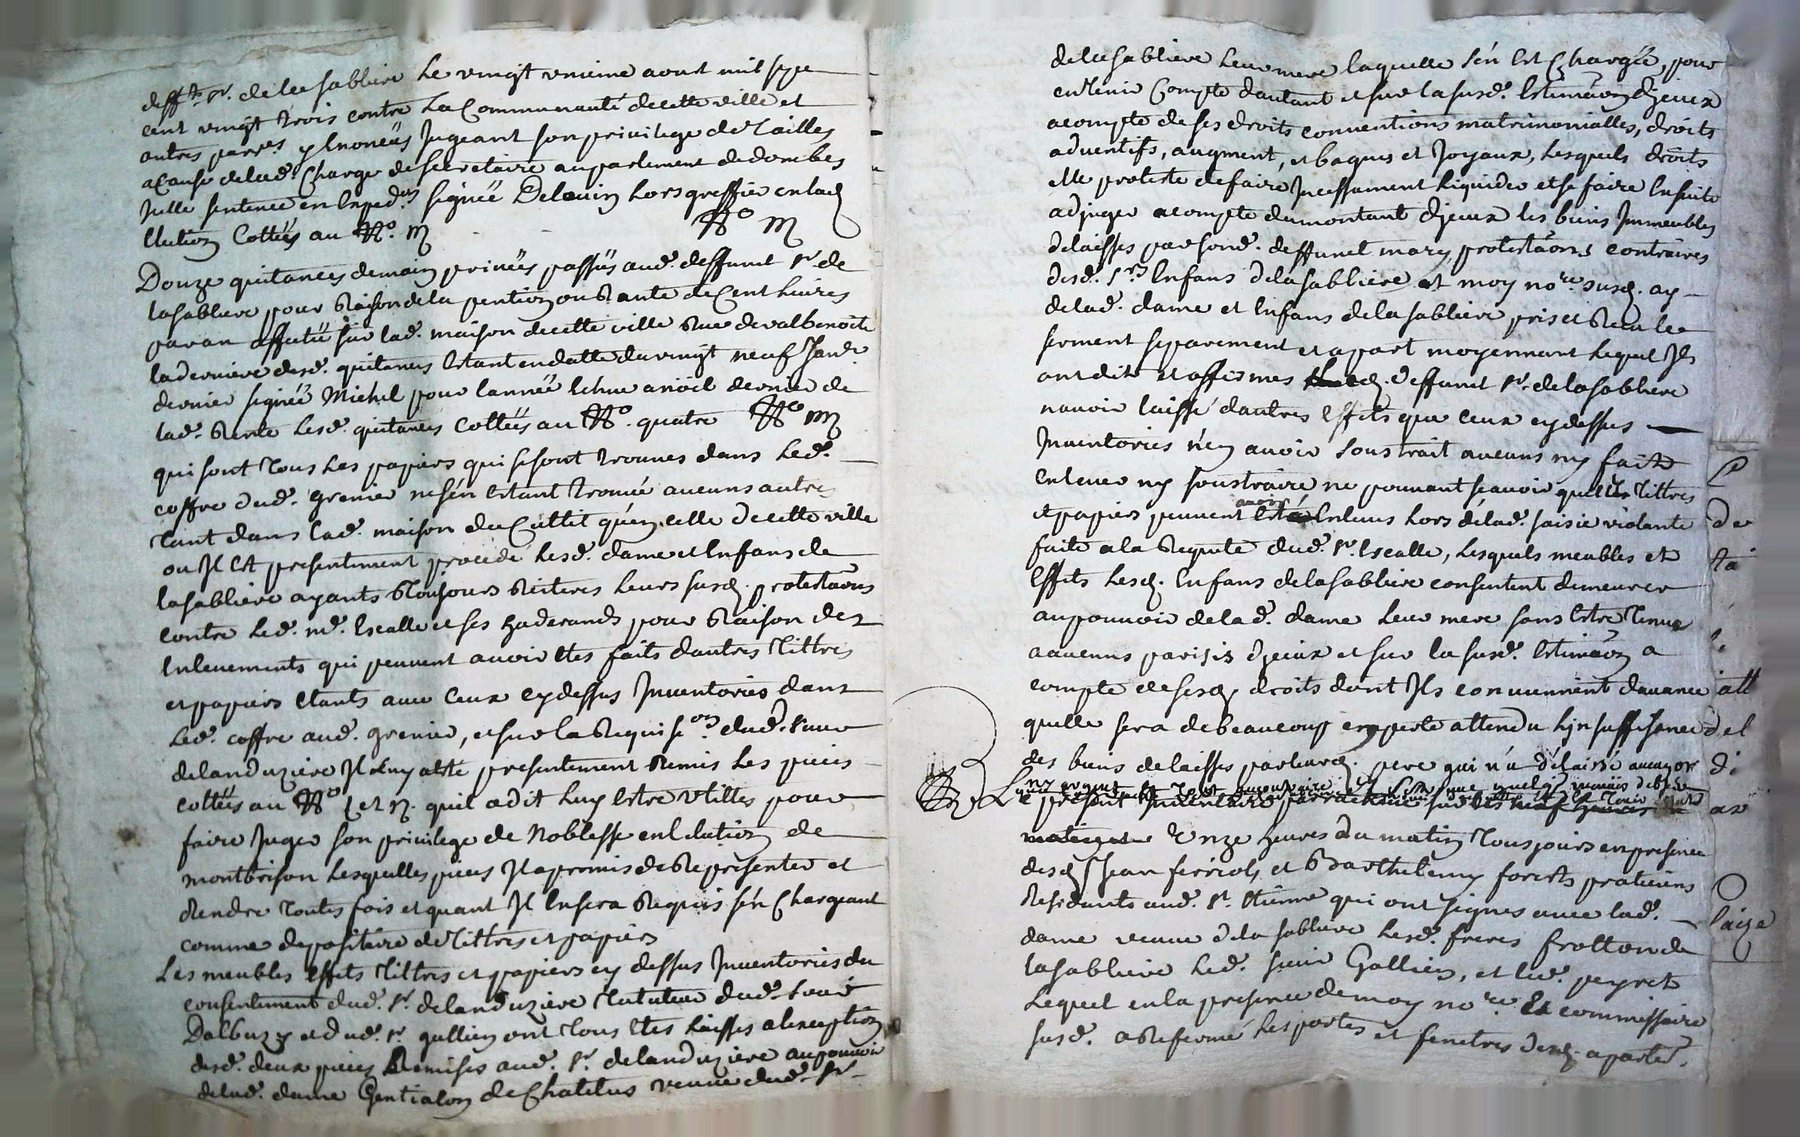 defft. Sr. de la Sabliere le vingt unieme aoust mil sept
cent vingt trois contre la Communauté de cette ville et
autres parres. y enoncées Jugeant son privilege de Tailles
a cause de lad. Charge de secretaire au parlement de dombes
Jcelle sentence en signée Delouin hors greffier en lad.
Election Cottés au No. m
No m
Douze quitances de main privées passés aud. deffunt Sr. de
lasabliere pour Raison de la pention ou Rante de Cent livres
par an affectée sur lad. maison de cette ville Rue de valbenoite
la derniere desd. quitances estant en datte du vingt neuf Janvr.
dernier signée Michel pour lannée echue a noel dernier de
lad. Rente lesd. quitances Cottées au No. quatre No m
qui sont Tous les papiers qui se sont trouvés dans led.
coffre dud. grenier ne s'en estant trouvé aucuns autres
Tant dans lad. maison du qu'en celle de cette ville
ou Jl est presentement procedé lesd. dame et Enfans de
lasabliere ayants Toujours Reiteres leurs susd. protestaons
contre led. me. Escalle et ses pour Raison des
Enlevements qui peuvent avoir etes faits dautres Tittres
et papiers etants avec Ceux cy dessus Jnventories dans
led. coffre aud. grenier, et sur la Requison. dud. sieur
delanduziere Jl luy a été presentement Remis les pieces
cottées au No. et . quil a dit luy estre utilles pour
faire Juger son privilege de Noblesse en lelection de
montbrison lesquelles pieces Jl a promis de Representer et
Rendre toutes fois et quant Jl En sera Requis s'en Chargeant
comme depositaire de Tittres et papiers
Les meubles effets Tittres et papiers cy dessus Jnventories du
consentement dud. Sr. delanduziere Tuteur dud. sieur
Dalbuzy et dud. Sr. gallien ont Tous etes laisses a lexception
desd. deux pieces Remises aud. Sr. delanduziere au pouvoir
de lad. dame Gentialon de Chatelus veuve dud. Sr.
de la Sabliere leur mere laquelle s'en est Chargée, pour
en tenir Compte dautant et sur la susd. Estimaon d'Jceux
acompte de ses droits conventions matrimonialles, droits
adventifs, augment, et bagues et Joyaux, lesquels droits
elle proteste de faire Jncessament liquider et se faire Ensuite
adjuger a compte du montant d'Jceux les biens Jmmeubles
delaisses par sond. deffunct mary, protestaons contraires
desd. Srs Enfans de la Sabliere et moy nore. susd. ay
de lad. dame et Enfans de la Sabliere pris et Receu le
serment separement et apart moyennant lequel Jls
ont dit et affirmes led. deffunt Sr. de la Sabliere
navoir laissé dautres effets que ceux cy dessus
Jnventories n'en avoir soustrait aucuns ny faits
enlever ny soustraire ne pouvant scavoir quels Tittres
et papiers peuvent avoir esté Enleves hors de lad. saisie violante
faite a la Requete dud. Sr. Escalle, lesquels meubles et
Effets lesd. Enfans de la Sabliere consentent demeurer
au pouvoir de la d. dame leur mere sans estre Tenue
a aucuns parisis d'Jceux et sur la susd. Estimaon a
compte de sesd. droits dont Jls conviennent davance
quelle sera de beaucoup en perte attendu l'insuffisance
des biens delaisses par leurd. pere qui n'a délaissé aucun or
ny argent
Le present Jnventaire
Onze heures du matin Tousjours en presence
desd. Sr Jean ferriols et Barthelemy forests praticiens
Residants aud. St. Etienne qui ont signes avec lad.
dame veuve de la Sabliere lesd. freres frotton de
lasabliere led. sieur Gallien, et led. peyret
lequel en la presence de moy nore. & commissaire
susd. a Refermé les portes et fenetres desd. apartes.